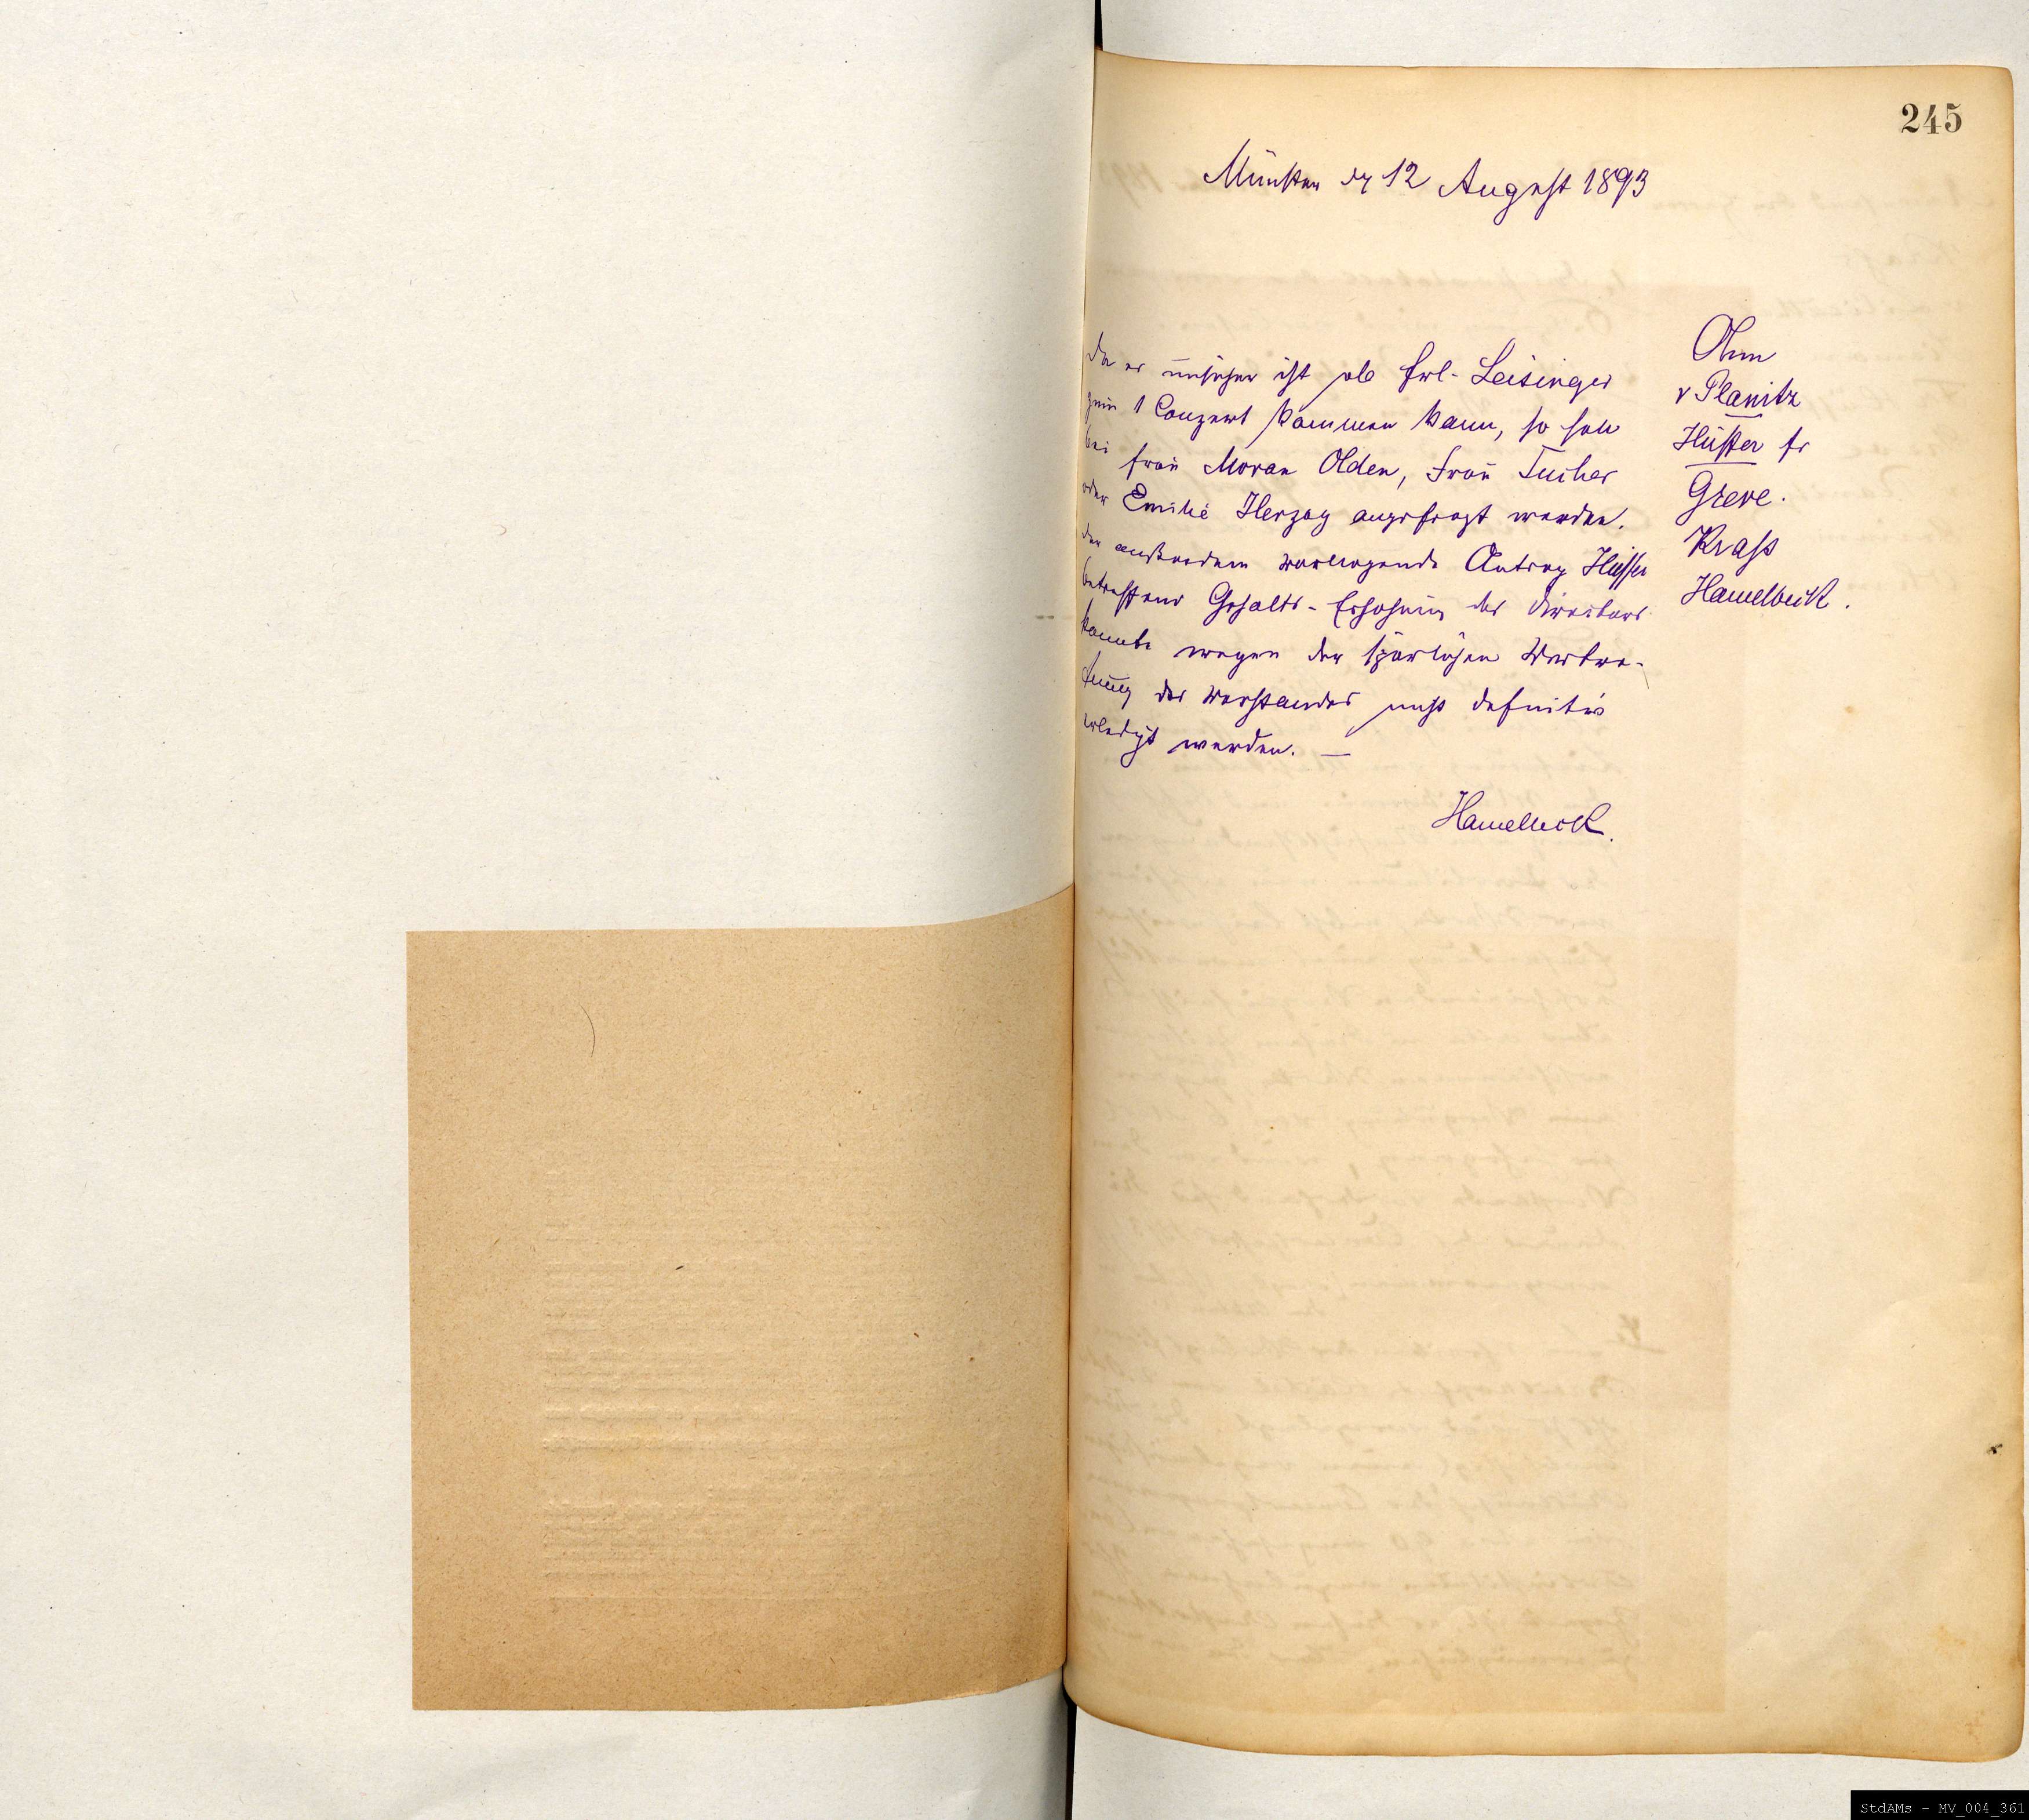 245
Münster den 12 August 1893
Da es unsicher ist ob Frl. Leisinger
zum 1 Conzert kommen kann, so soll
bei Frau Moran Olden, Frau
oder Emilie Herzog angefragt werden.
Der außerdem vorliegende Antrag Hüffer
betreffend Gehalts-Erhöhung des Directors
konnte wegen der spärlichen Vertre-
tung des Vorstandes nicht definitiv
erledigt werden. —
Hamelbeck.
Ohm
v Planitz
Hüffer fr
Greve.
Krass
Hamelbeck.
StdAMs - MV_004_361